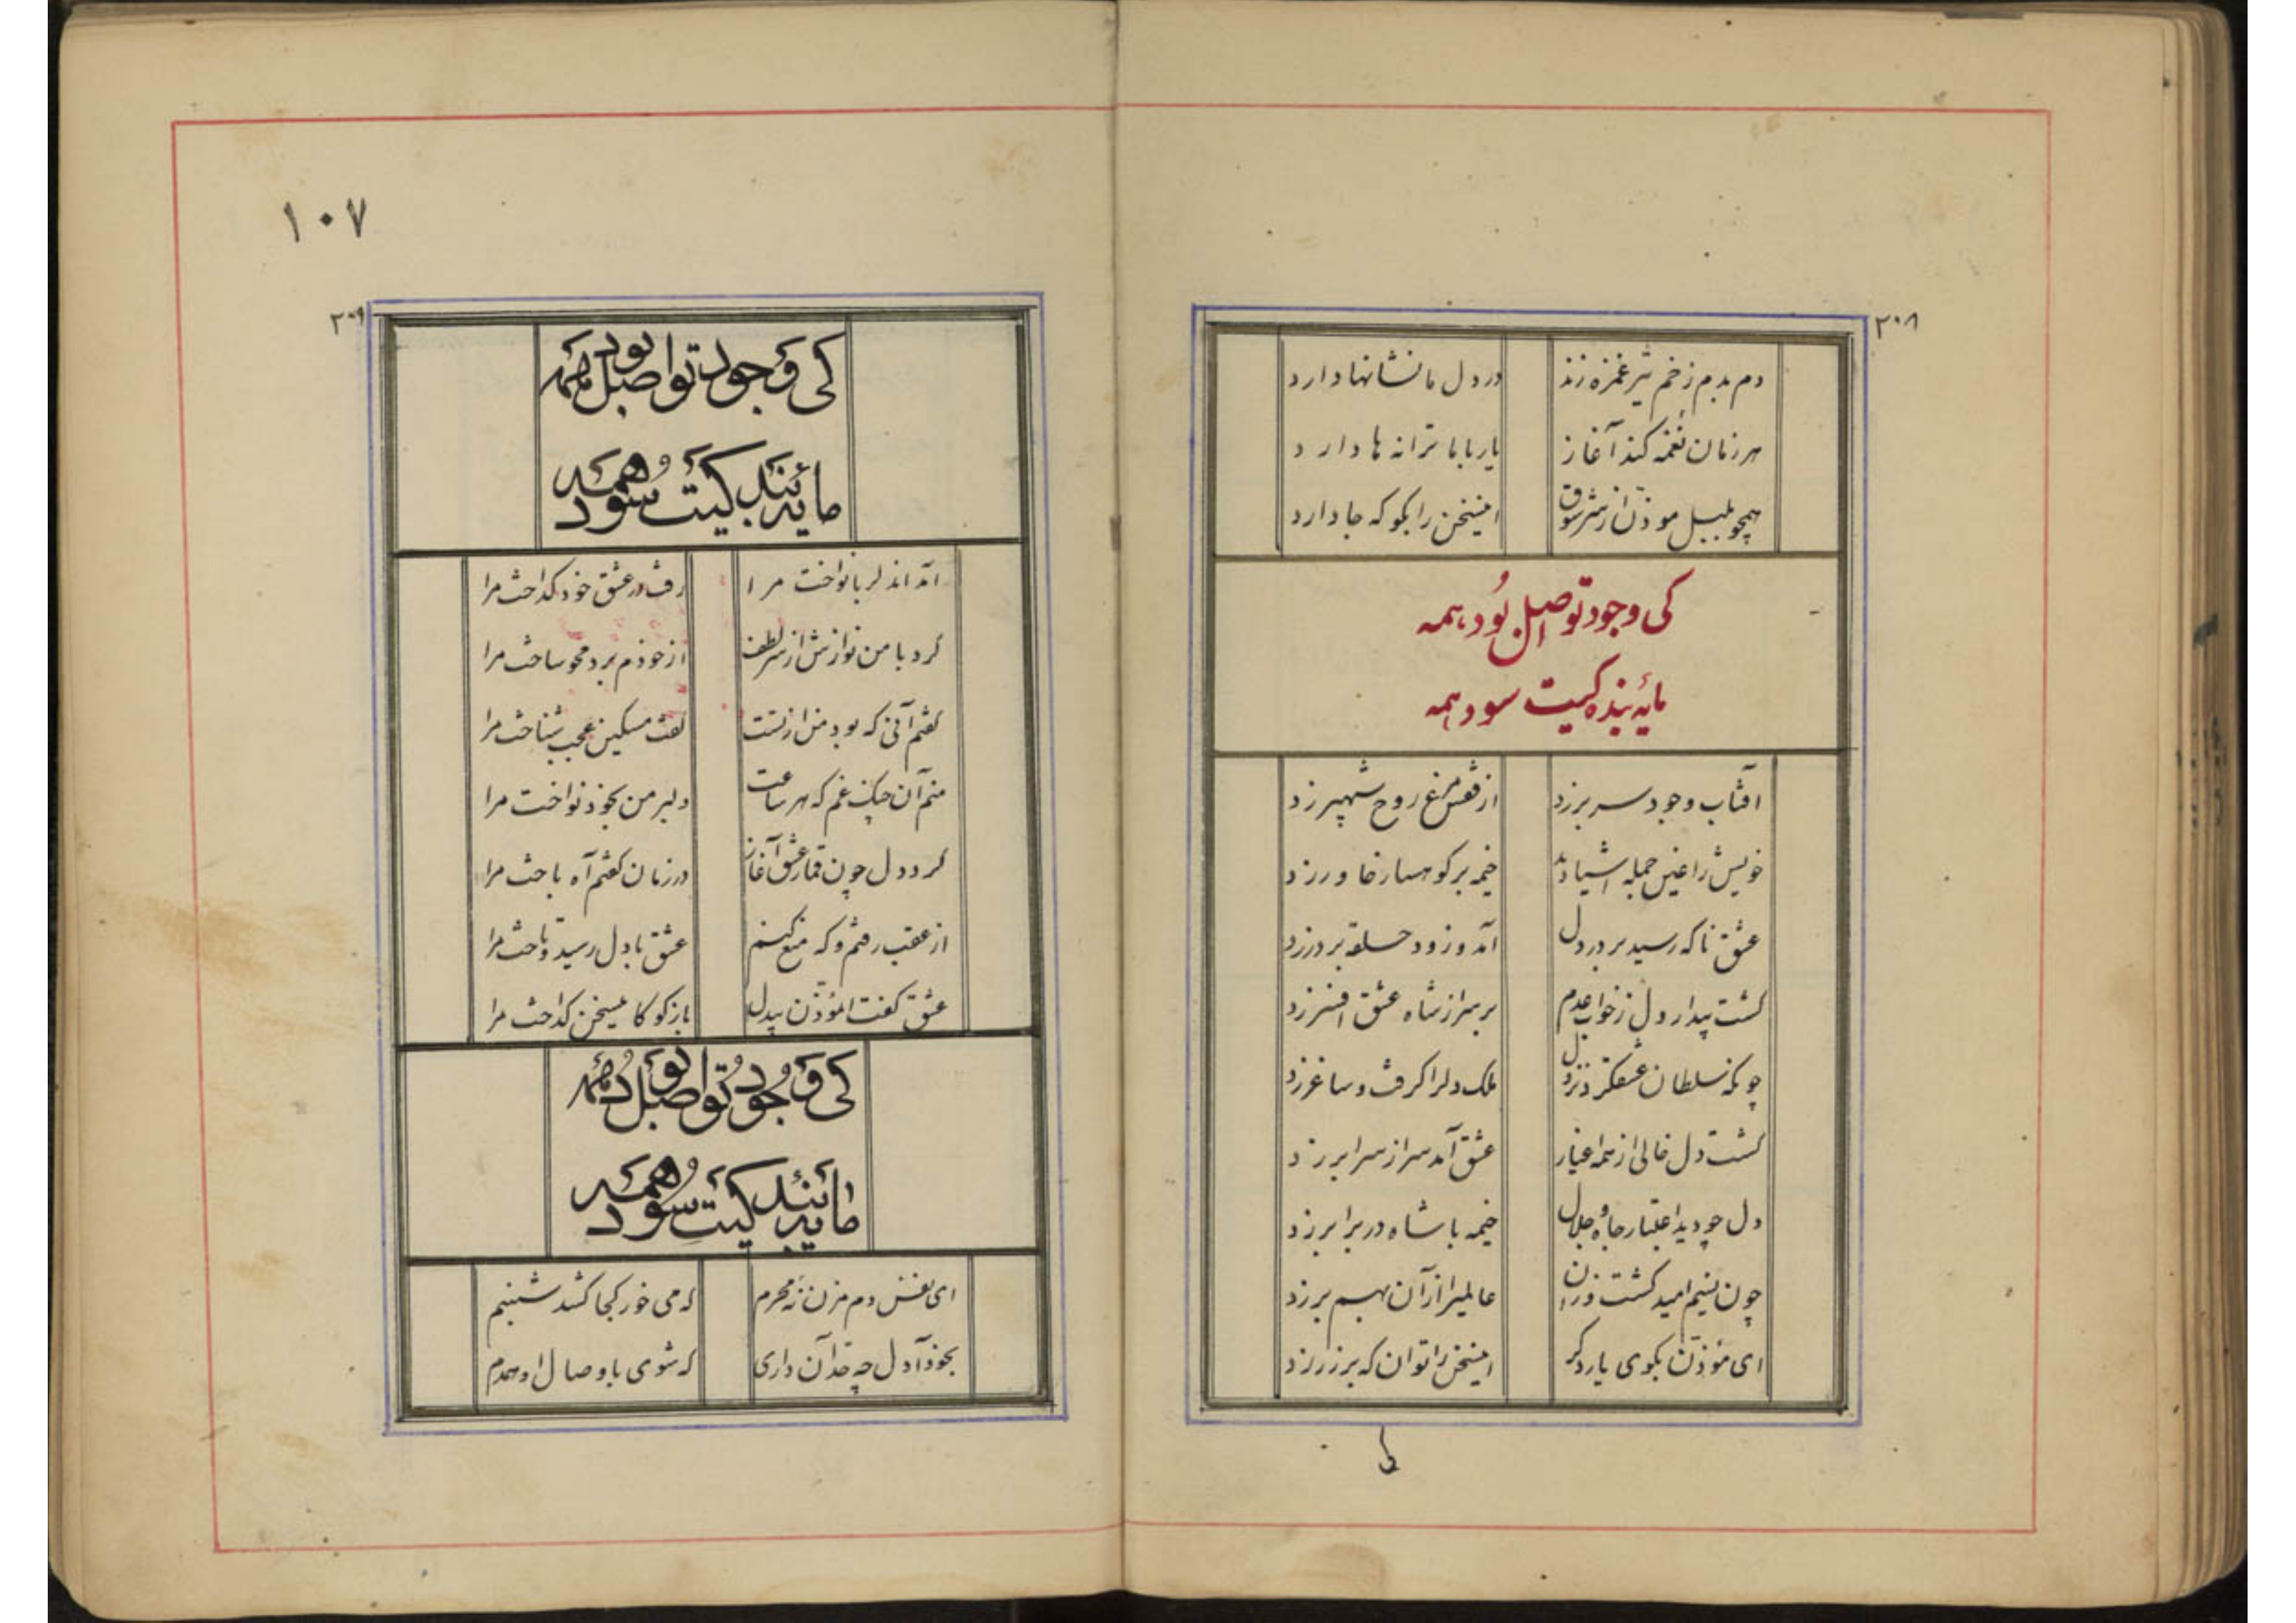 ۲۰۸
دم بدم زخم تیر غمزه زند در دل ما نشانها دارد
هر زمان نغمه کند آغاز یار با ما ترانه ها دارد
همچو بلبل موذن از سر شوق اینسخن را بگو که جا دارد
کی وجود تو اصل بُود همه
مایهٔ بنده کیت سود همه
آفتاب وجود سر برزد از قفس مرغ روح شهپر زد
خویش را عین جمله اشیا دید خیمه بر کوهسار خاور زد
عشق ناکه رسید بر در دل آمد و زود حلقه بر در زد
کشت بیدار دل ز خواب عدم بر سر از شاه عشق افسر زد
چونکه سلطان عشق کرد نزول ملک دلرا کرفت و ساغر زد
کشت دل خالی از همه اغیار عشق آمد سر از سرا برزد
دل چو دید اعتبار جاه و جلال خیمه با شاه در برابر زد
چون نسیم امید کشت وزان عالمیرا از آن بهم برزد
ای مؤذن بکوی بار دکر اینسخن را توان که بر زر زد
۱۰۷
۲۰۹
کی وجود تو اصل بود همه
مایهٔ بندکیت سُود همه
آمد آن دلربا نواخت مرا رفت و در عشق خود کداخت مرا
کرد با من نوازش از سر لطف از خودم برد و محو ساخت مرا
کفتم آنی که بود من از تست کفت مسکین عجب شناخت مرا
منم آن چنک غم که هر ساعت دلبر من بخود نواخت مرا
کرد دل چون قمار عشق آغاز در زمان کفتم آه باخت مرا
از عقب رفتم و که منع کنم عشق با دل رسید و تاخت مرا
عشق کفت ای مؤذن بیدل باز کو کاینسخن کداخت مرا
کی وجُود تو اصل بُود همه
مایهٔ بندکیت سُود همه
ای نفس دم مزن نهٔ محرم که می خور کجا کشد شبنم
بخود آ دل چه حد آن داری که شوی با وصال او همدم